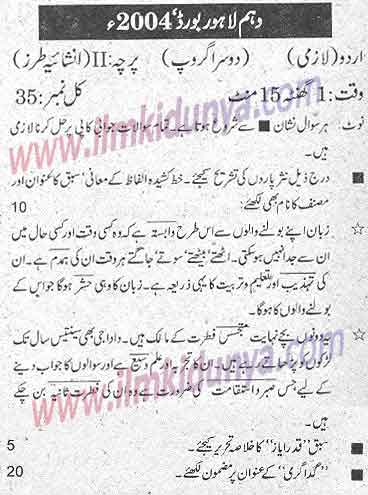 دہم لاہور بورڈ، 2004ء
اردو (لازمی) (دوسرا گروپ) پرچہ: II (انشائیہ طرز)
وقت: 1 گھنٹہ 15 منٹ کل نمبر: 35
نوٹ: ہر سوال نشان ■ سے شروع ہوتا ہے۔ تمام سوالات جوابی کاپی پر حل کرنا لازمی
ہیں۔
■ درج ذیل نثر پاروں کی تشریح کیجئے۔ خط کشیدہ الفاظ کے معانی، سبق کا عنوان اور
مصنف کا نام بھی لکھئے: 10
☆ زبان اپنے بولنے والوں سے اس طرح وابستہ ہے کہ وہ کسی وقت اور کسی حال میں
ان سے جدا نہیں ہو سکتی۔ اٹھتے، بیٹھتے، سوتے، جاگتے ہر وقت ان کی ہمدم ہے۔ ان
کی تہذیب اور تعلیم و تربیت کا یہی ذریعہ ہے۔ زبان کا وہی حشر ہو گا جو اس کے
بولنے والوں کا ہو گا۔
☆ یہ دونوں بچے نہایت متجسس فطرت کے مالک ہیں۔ دادا جی بھی سینتیس سال تک
لڑکوں کو پڑھاتے رہے ہیں۔ ان کا تجربہ اور علم وسیع ہے اور سوالوں کا جواب دینے
کے لیے جس صبر و استقامت کی ضرورت ہے وہ ان کی فطرت ثانیہ بن چکے
ہیں۔
■ سبق "قدر ایاز" کا خلاصہ تحریر کیجئے۔ 5
■ "گداگری" کے عنوان پر مضمون لکھئے۔ 20
www.ilmkidunya.com
www.ilmkidunya.com